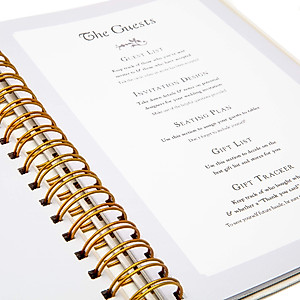 The Guests
Guest List
Keep track of those who you've sent
invites to & those who have accepted.
Invitation Design
Take down details & notes on potential
designs for your wedding invitation.
Seating Plan
Use this section to assign your guests to tables
Don't forget to include yourself!
Gift List
Use this section to decide on the
best gift list and stores for you.
Gift Tracker
Keep track of who bought
& whether a "Thank you card"
To save yourself future headache, be sure not